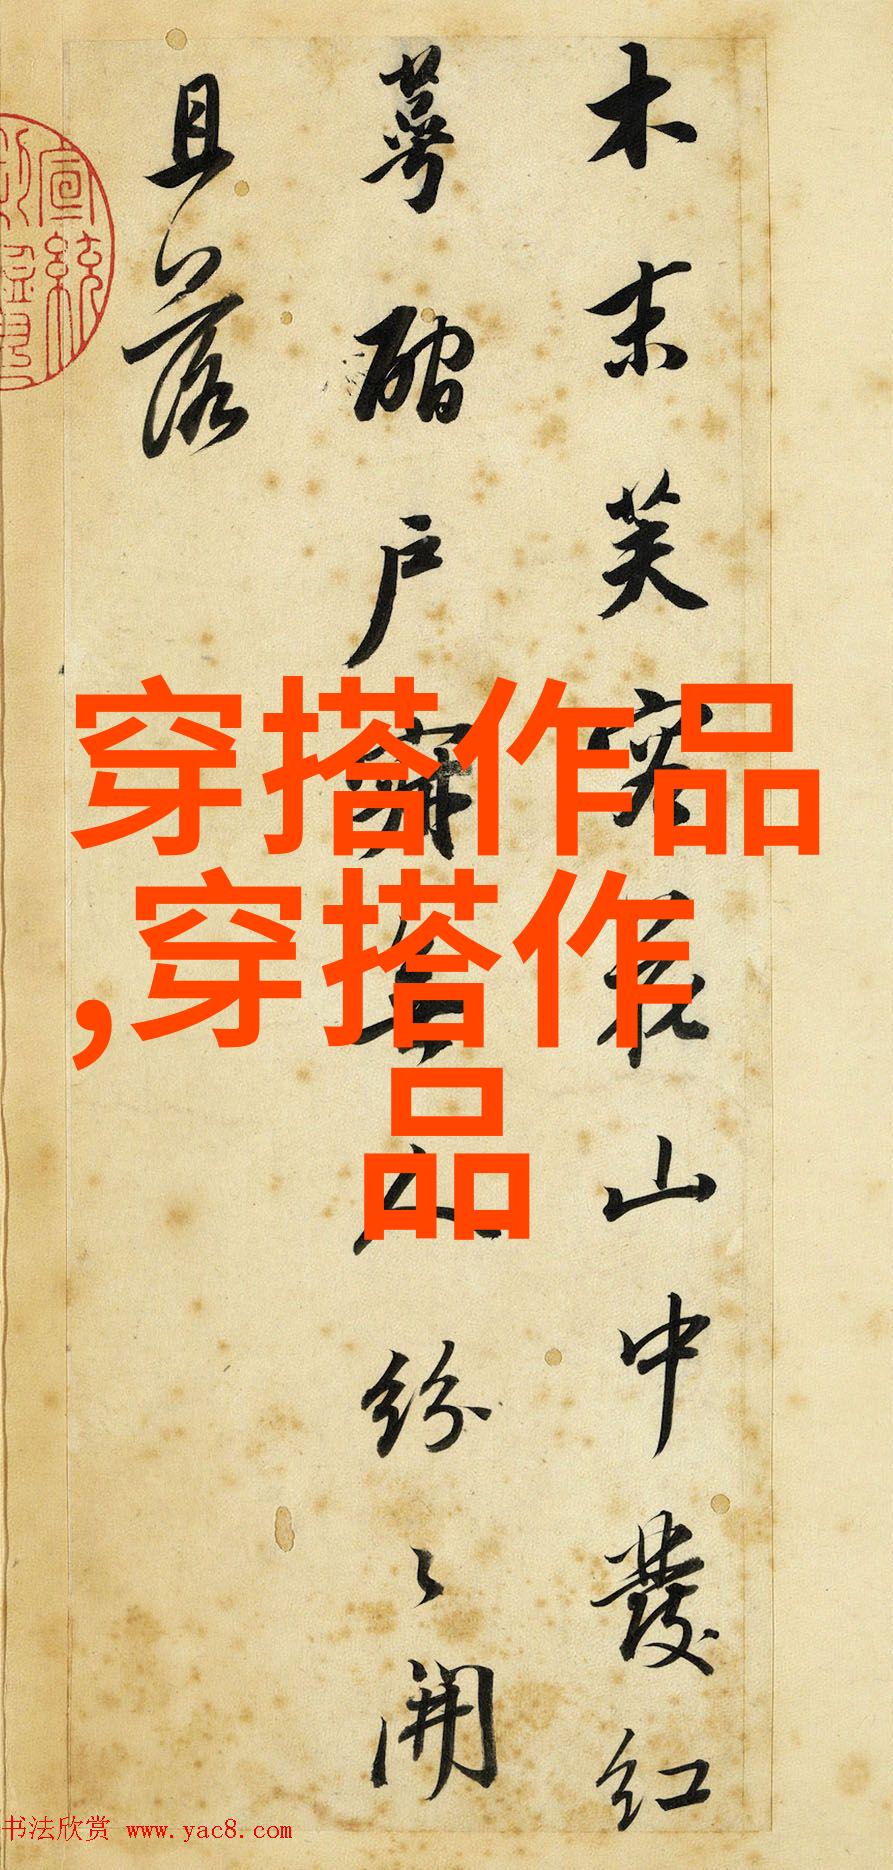 木末芙容花山中發紅
萼磵戶人紛〻開
且落
宣統
穿搭作品
,穿搭作
品
书法欣赏 www.yac8.com